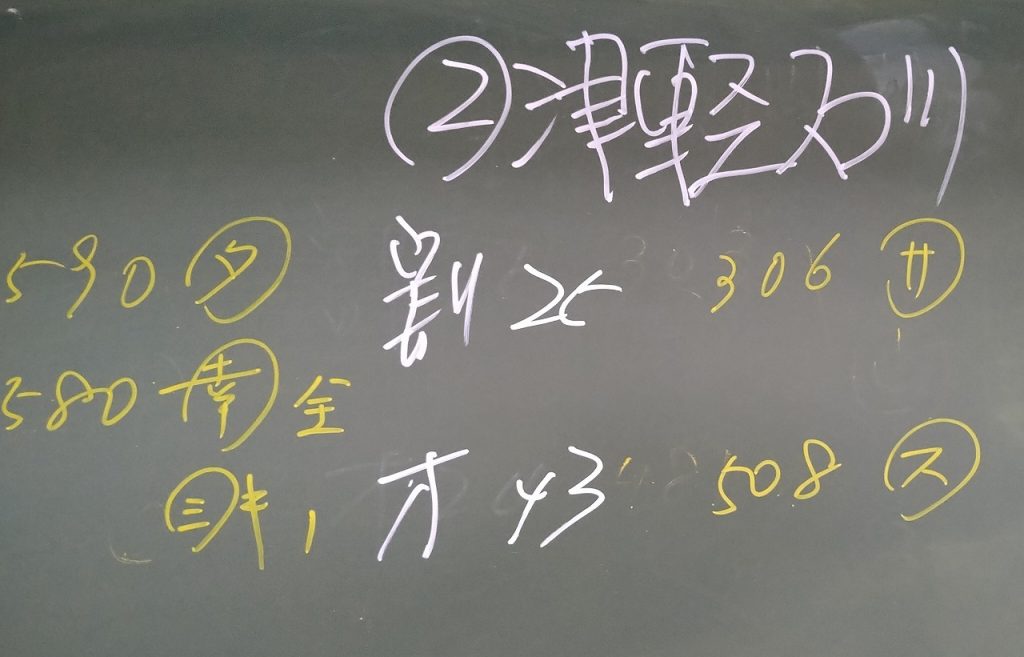 ②津軽石川
590 ㋟ 割 25 306 ㋚
580 南 全
三キ 1 才 43 508 ㋜